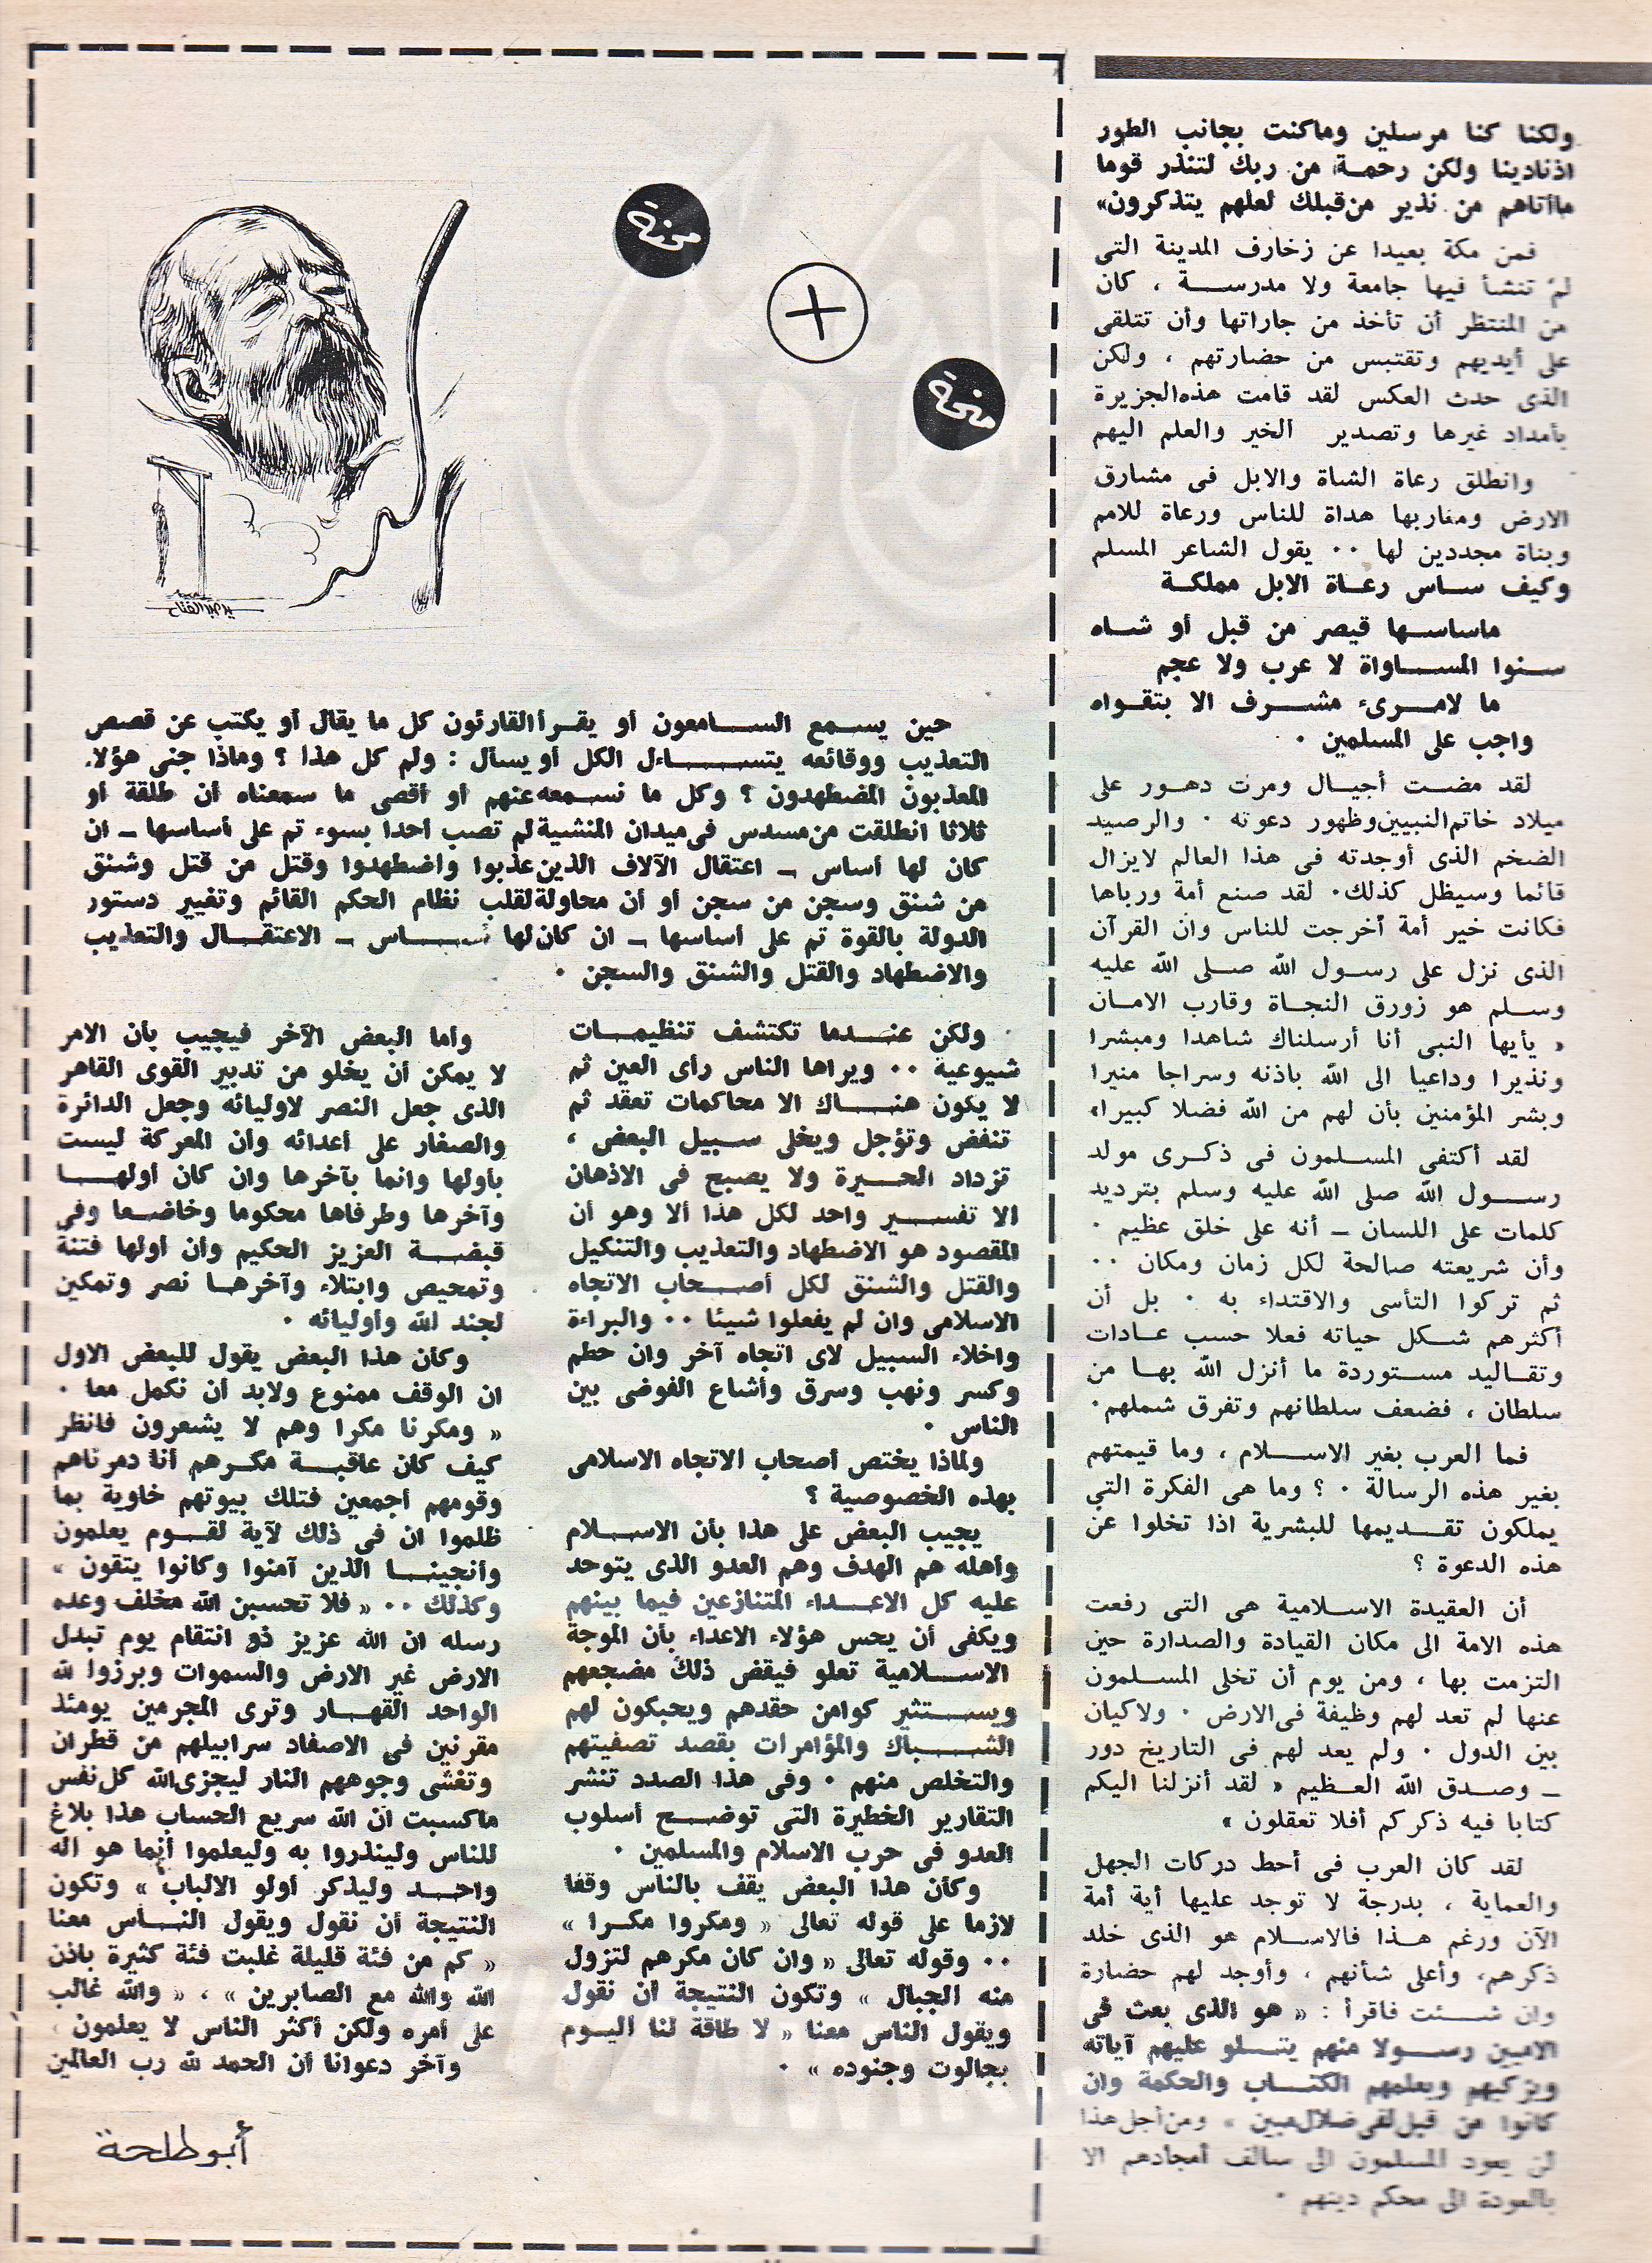 ولكنا كنا مرسلين وماكنت بجانب الطور
اذنادينا ولكن رحمة من ربك لتنذر قوما
ماأتاهم من نذير من قبلك لعلهم يتذكرون»
فمن مكة بعيدا عن زخارف المدينة التى
لم تنشأ فيها جامعة ولا مدرسة ، كان
من المنتظر أن تأخذ من جاراتها وأن تتلقى
على أيديهم وتقتبس من حضارتهم ، ولكن
الذى حدث العكس لقد قامت هذه الجزيرة
بأمداد غيرها وتصدير الخير والعلم اليهم
وانطلق رعاة الشاة والابل فى مشارق
الارض ومغاربها هداة للناس ورعاة للامم
وبناة مجددين لها .. يقول الشاعر المسلم
وكيف ساس رعاة الابل مملكة
ماساسها قيصر من قبل أو شاه
سنوا المساواة لا عرب ولا عجم
ما لامرىء مشرف الا بتقواه
واجب على المسلمين .
لقد مضت أجيال ومرت دهور على
ميلاد خاتم النبيين وظهور دعوته . والرصيد
الضخم الذى أوجدته فى هذا العالم لايزال
قائما وسيظل كذلك. لقد صنع أمة ورباها
فكانت خير أمة أخرجت للناس وان القرآن
الذى نزل على رسول الله صلى الله عليه
وسلم هو زورق النجاة وقارب الامان
« يأيها النبى أنا أرسلناك شاهدا ومبشرا
ونذيرا وداعيا الى الله باذنه وسراجا منيرا
وبشر المؤمنين بأن لهم من الله فضلا كبيرا»
لقد أكتفى المسلمون فى ذكرى مولد
رسول الله صلى الله عليه وسلم بترديد
كلمات على اللسان ــ أنه على خلق عظيم .
وأن شريعته صالحة لكل زمان ومكان ..
ثم تركوا التأسى والاقتداء به . بل أن
أكثرهم شكل حياته فعلا حسب عادات
وتقاليد مستوردة ما أنزل الله بها من
سلطان ، فضعف سلطانهم وتفرق شملهم.
فما العرب بغير الاسلام ، وما قيمتهم
بغير هذه الرسالة . ؟ وما هى الفكرة التي
يملكون تقديمها للبشرية اذا تخلوا عن
هذه الدعوة ؟
أن العقيدة الاسلامية هى التى رفعت
هذه الامة الى مكان القيادة والصدارة حين
التزمت بها ، ومن يوم أن تخلى المسلمون
عنها لم تعد لهم وظيفة فى الارض . ولاكيان
بين الدول . ولم يعد لهم فى التاريخ دور
ــ وصدق الله العظيم « لقد أنزلنا اليكم
كتابا فيه ذكركم أفلا تعقلون »
لقد كان العرب فى أحط دركات الجهل
والعماية ، بدرجة لا توجد عليها أية أمة
الآن ورغم هذا فالاسلام هو الذى خلد
ذكرهم، وأعلى شأنهم ، وأوجد لهم حضارة
وان شئت فاقرأ : « هو الذى بعث فى
الاميين رسولا منهم يتلو عليهم آياته
ويزكيهم ويعلمهم الكتاب والحكمة وان
كانوا من قبل لفى ضلال مبين » ومن أجل هذا
لن يعود المسلمون الى سالف أمجادهم الا
بالعودة الى محكم دينهم .
محنة
+
منحة
بدر عبد الفتاح
حين يسمع السامعون أو يقرأ القارئون كل ما يقال أو يكتب عن قصص
التعذيب ووقائعه يتساءل الكل أو يسأل : ولم كل هذا ؟ وماذا جنى هؤلاء
المعذبون المضطهدون ؟ وكل ما نسمعه عنهم أو أقصى ما سمعناه أن طلقة أو
ثلاثا انطلقت من مسدس فى ميدان المنشية لم تصب أحدا بسوء تم على أساسها ــ ان
كان لها أساس ــ اعتقال الآلاف الذين عذبوا واضطهدوا وقتل من قتل وشنق
من شنق وسجن من سجن أو أن محاولة لقلب نظام الحكم القائم وتغيير دستور
الدولة بالقوة تم على أساسها ــ ان كان لها أساس ــ الاعتقال والتعذيب
والاضطهاد والقتل والشنق والسجن .
ولكن عندما تكتشف تنظيمات
شيوعية .. ويراها الناس رأى العين ثم
لا يكون هناك الا محاكمات تعقد ثم
تنفض وتؤجل ويخلى سبيل البعض ،
تزداد الحيرة ولا يصبح فى الاذهان
الا تفسير واحد لكل هذا ألا وهو أن
المقصود هو الاضطهاد والتعذيب والتنكيل
والقتل والشنق لكل أصحاب الاتجاه
الاسلامى وان لم يفعلوا شيئا .. والبراءة
واخلاء السبيل لاى اتجاه آخر وان حطم
وكسر ونهب وسرق وأشاع الفوضى بين
الناس .
ولماذا يختص أصحاب الاتجاه الاسلامى
بهذه الخصوصية ؟
يجيب البعض على هذا بأن الاسلام
وأهله هم الهدف وهم العدو الذى يتوحد
عليه كل الاعداء المتنازعين فيما بينهم
ويكفى أن يحس هؤلاء الاعداء بأن الموجة
الاسلامية تعلو فيقض ذلك مضجعهم
ويستثير كوامن حقدهم ويحبكون لهم
الشباك والمؤامرات بقصد تصفيتهم
والتخلص منهم . وفى هذا الصدد تنشر
التقارير الخطيرة التى توضح أسلوب
العدو فى حرب الاسلام والمسلمين .
وكأن هذا البعض يقف بالناس وقفا
لازما على قوله تعالى « ومكروا مكرا »
.. وقوله تعالى « وان كان مكرهم لتزول
منه الجبال » وتكون النتيجة أن نقول
ويقول الناس معنا « لا طاقة لنا اليوم
بجالوت وجنوده » .
وأما البعض الآخر فيجيب بأن الامر
لا يمكن أن يخلو من تدبير القوى القاهر
الذى جعل النصر لاوليائه وجعل الدائرة
والصغار على أعدائه وأن المعركة ليست
بأولها وانما بآخرها وان كان أولها
وآخرها وطرفاها محكوما وخاضعا وفي
قبضة العزيز الحكيم وان أولها فتنة
وتمحيص وابتلاء وآخرها نصر وتمكين
لجند الله وأوليائه .
وكأن هذا البعض يقول للبعض الاول
ان الوقف ممنوع ولابد أن نكمل معا .
« ومكرنا مكرا وهم لا يشعرون فانظر
كيف كان عاقبة مكرهم أنا دمرناهم
وقومهم أجمعين فتلك بيوتهم خاوية بما
ظلموا ان فى ذلك لآية لقوم يعلمون
وأنجينا الذين آمنوا وكانوا يتقون »
وكذلك .. « فلا تحسبن الله مخلف وعده
رسله ان الله عزيز ذو انتقام يوم تبدل
الارض غير الارض والسموات وبرزوا لله
الواحد القهار وترى المجرمين يومئذ
مقرنين فى الاصفاد سرابيلهم من قطران
وتغشى وجوههم النار ليجزى الله كل نفس
ماكسبت ان الله سريع الحساب هذا بلاغ
للناس ولينذروا به وليعلموا أنما هو اله
واحد وليذكر أولو الالباب » وتكون
النتيجة أن نقول ويقول الناس معنا
« كم من فئة قليلة غلبت فئة كثيرة باذن
الله والله مع الصابرين » ، « والله غالب
على أمره ولكن أكثر الناس لا يعلمون »
وآخر دعوانا أن الحمد لله رب العالمين
أبو طلحة